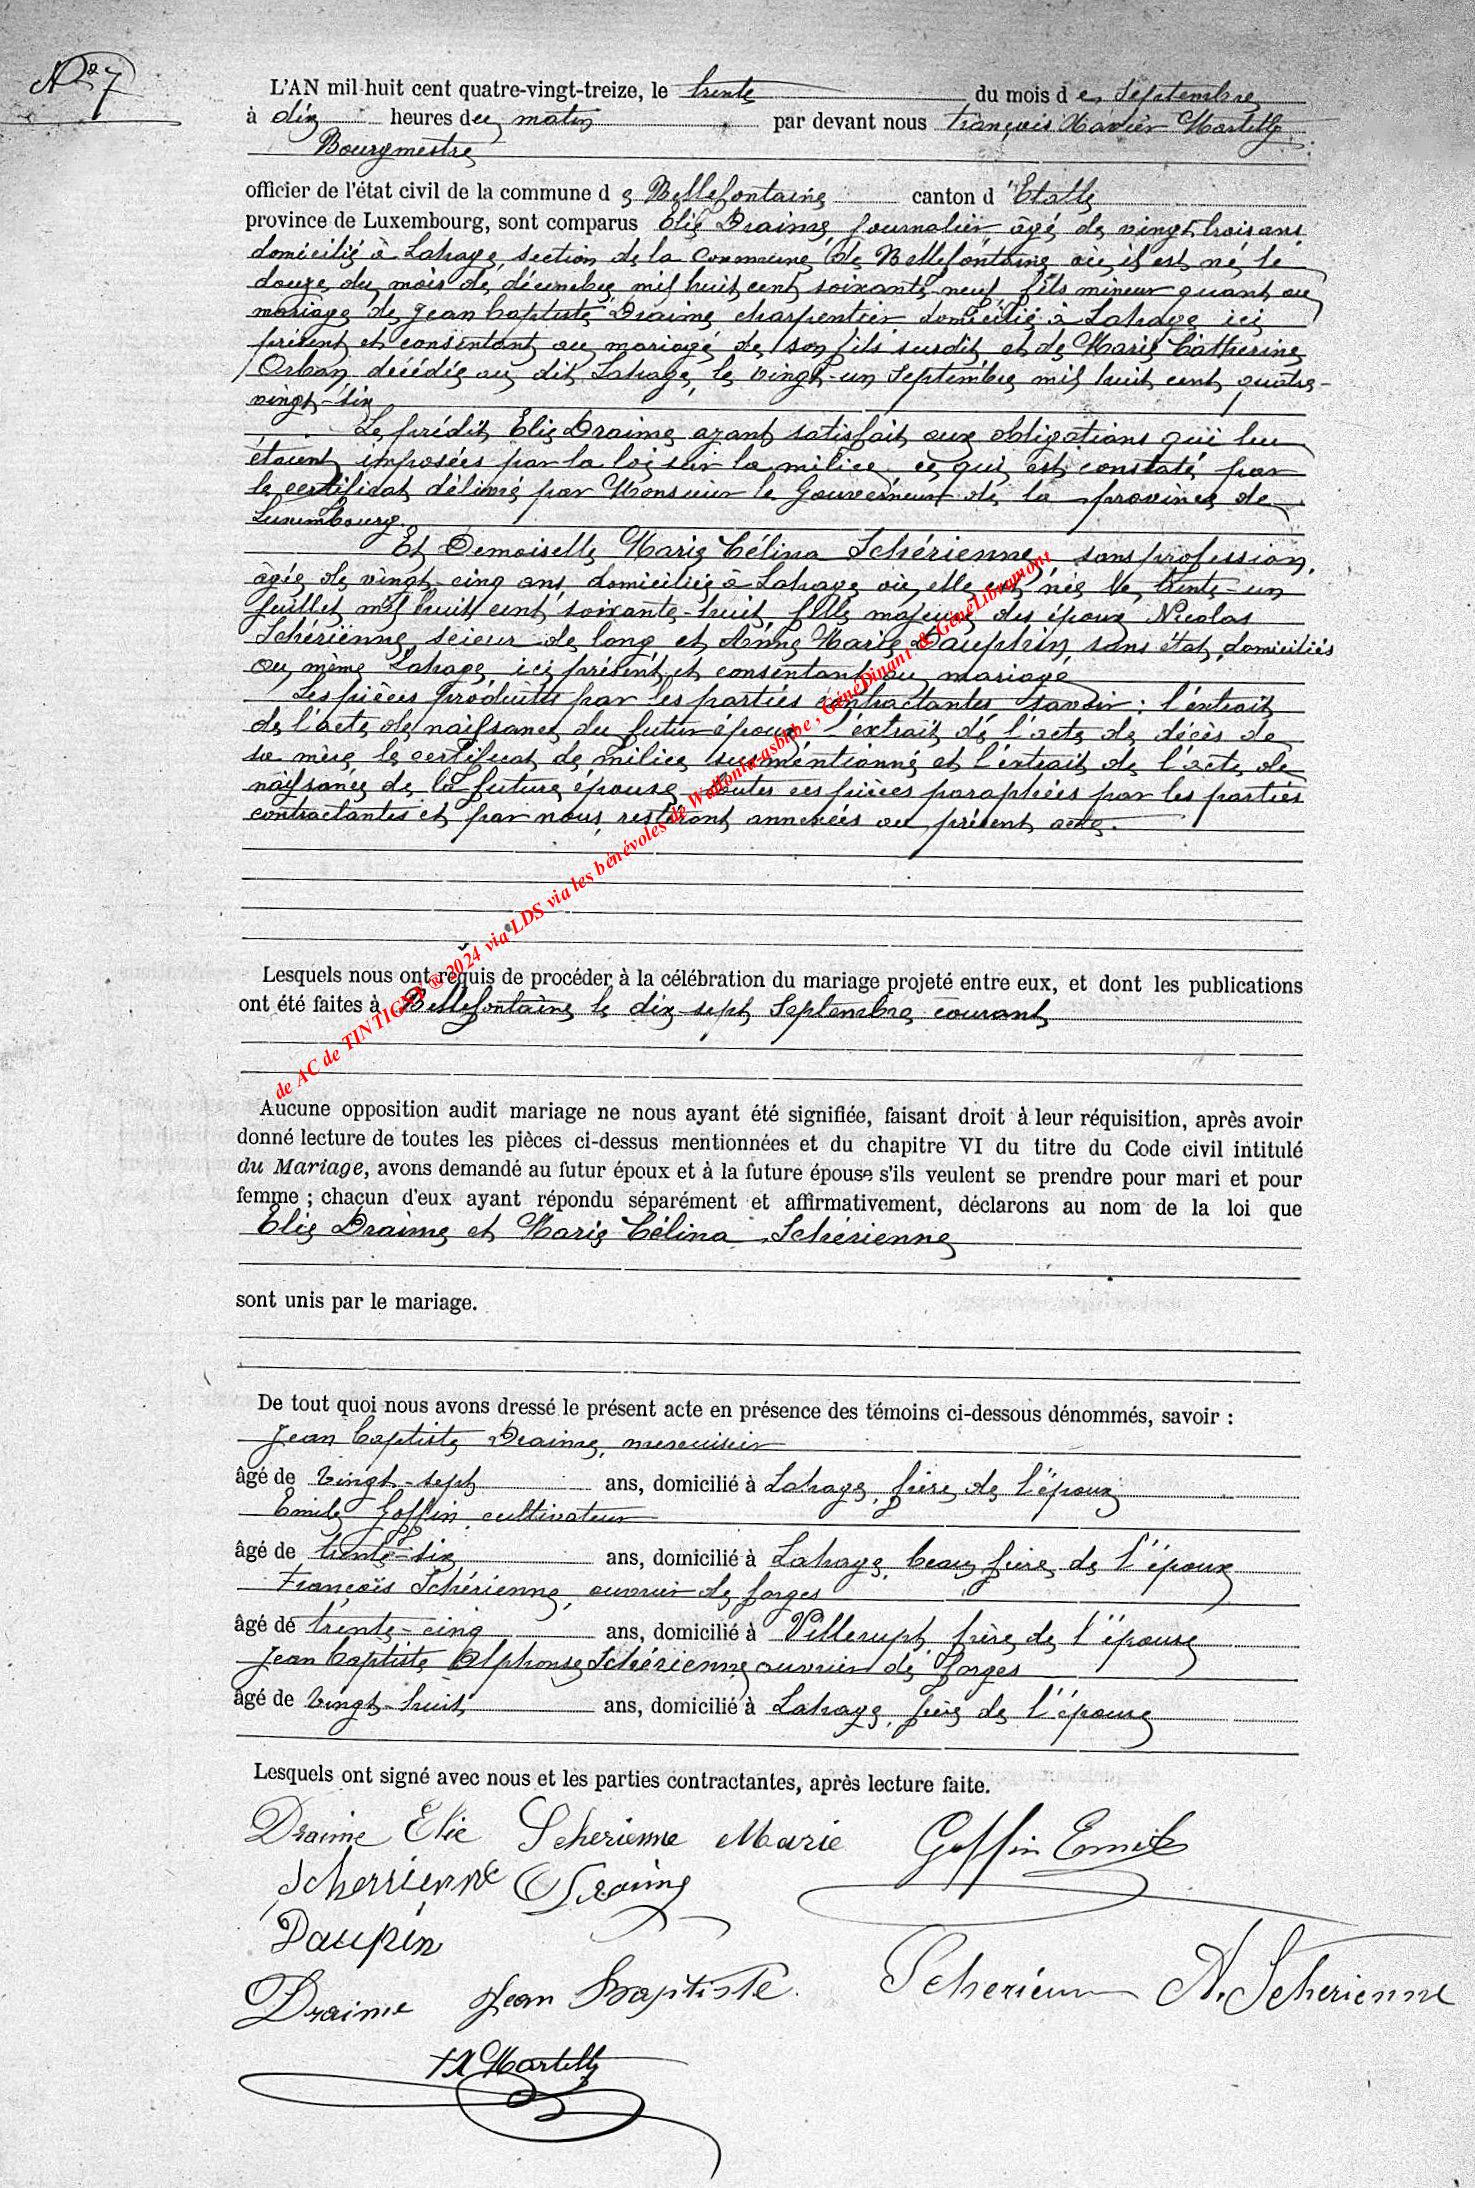 N° 7
L'AN mil huit cent quatre-vingt-treize, le trente du mois de Septembre
à dix heures du matin par devant nous François Xavier Martilly
Bourgmestre
officier de l'état civil de la commune de Bellefontaine canton d'Etalle
province de Luxembourg, sont comparus Elie Draime journalier âgé de vingt trois ans
domicilié à Lahage, section de la commune de Bellefontaine où il est né le
douze du mois de décembre mil huit cent soixante-neuf fils mineur quant au
mariage de Jean Baptiste Draime charpentier domicilié à Lahage ici
présent et consentant au mariage de son fils susdit et de Marie Catherine
Orban décédée au dit Lahage, le vingt-un Septembre mil huit cent quatre-
vingt-six
Le prédit Elie Draime ayant satisfait aux obligations qui lui
étaient imposées par la loi sur la milice ce qui est constaté par
le certificat délivré par Monsieur le Gouverneur de la province de
Luxembourg.
Et Demoiselle Marie Célina Schérienne, sans profession,
âgée de vingt-cinq ans, domiciliée à Lahage où elle est née le trente-un
Juillet mil huit cent soixante-huit, fille majeure des époux Nicolas
Schérienne, scieur de long et Anne Marie Dauphin, sans état, domiciliés
au même Lahage, ici présent et consentant au mariage
Les pièces produites par les parties contractantes savoir : l'extrait
de l'acte de naissance du futur époux, l'extrait de l'acte de décès de
sa mère, le certificat de milice susmentionné et l'extrait de l'acte de
naissance de la future épouse, toutes ces pièces paraphées par les parties
contractantes et par nous, resteront annexées au présent acte.
Lesquels nous ont requis de procéder à la célébration du mariage projeté entre eux, et dont les publications
ont été faites à Bellefontaine le dix-sept Septembre courant
Aucune opposition audit mariage ne nous ayant été signifiée, faisant droit à leur réquisition, après avoir
donné lecture de toutes les pièces ci-dessus mentionnées et du chapitre VI du titre du Code civil intitulé
du Mariage, avons demandé au futur époux et à la future épouse s'ils veulent se prendre pour mari et pour
femme ; chacun d'eux ayant répondu séparément et affirmativement, déclarons au nom de la loi que
Elie Draime et Marie Célina Schérienne
sont unis par le mariage.
De tout quoi nous avons dressé le présent acte en présence des témoins ci-dessous dénommés, savoir :
Jean Baptiste Draime, menuisier
âgé de vingt-sept ans, domicilié à Lahage, frère de l'époux
Emile Goffin, cultivateur
âgé de trente-six ans, domicilié à Lahage, beau frère de l'époux
François Schérienne, ouvrier de forges
âgé de trente-cinq ans, domicilié à Villerupt, frère de l'épouse
Jean Baptiste Alphonse Schérienne ouvrier de forges
âgé de vingt-huit ans, domicilié à Lahage, frère de l'épouse
Lesquels ont signé avec nous et les parties contractantes, après lecture faite.
Draime Elie Scherienne Marie Goffin Emile
Scherrienne Draime
Daupin
Draime Jean Baptiste Scherienne A. Scherienne
FX Martilly
de AC de TINTIGNY ® 2024 via LDS via les bénévoles de Wallonia-asbl.be , GénéDinant & GénéLibramont